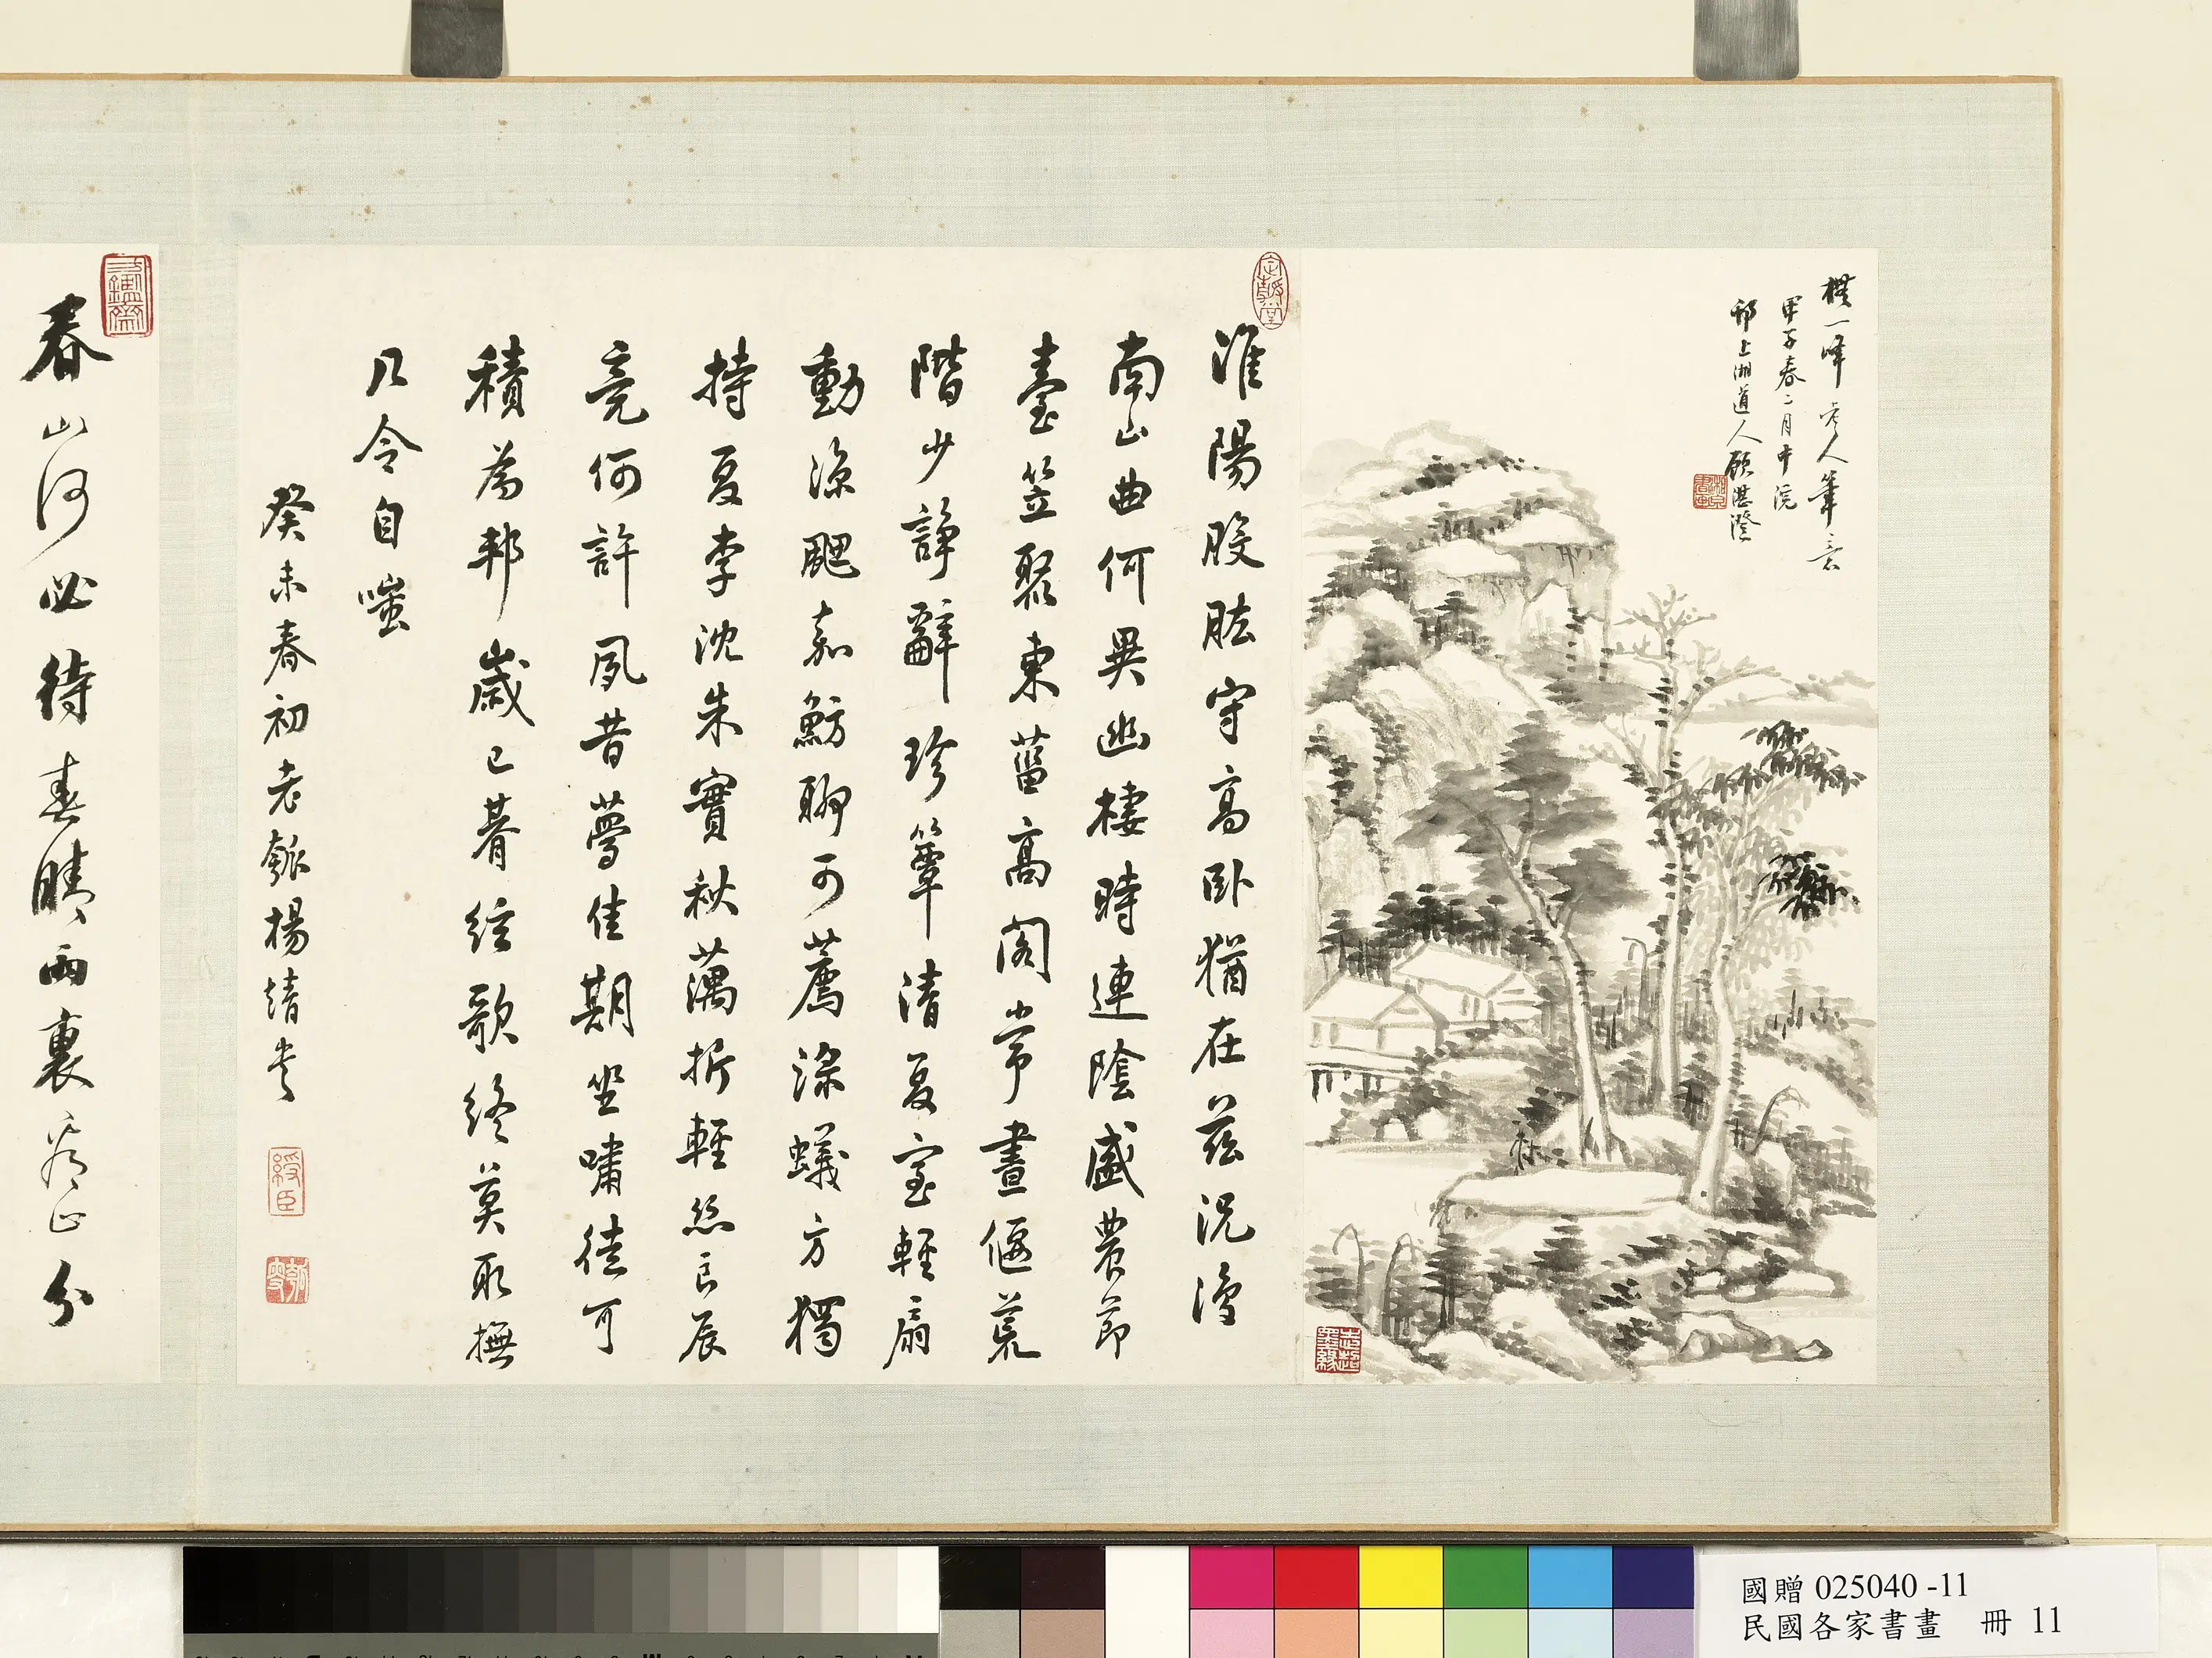 橅一峰老人筆意
甲子春二月中浣
邗上湖道人顧湛澄
淮陽股肱守高臥猶在茲況復
南山曲何異幽棲時連陰盛農節
臺笠聚東菑高閣常晝偃荒
階少諍辭珍簟清夏室輕扇
動涼颸嘉魴聊可薦淥蟻方獨
持夏李沈朱實秋藕折輕絲良辰
竟何許夙昔夢佳期坐嘯徒可
積為邦歲已朞絃歌終莫取撫
几令自嗤
癸未春初老瓠楊靖書
綬臣
春山河必待春晴雨裏
正分
國贈 025040 -11
民國各家書畫 冊 11